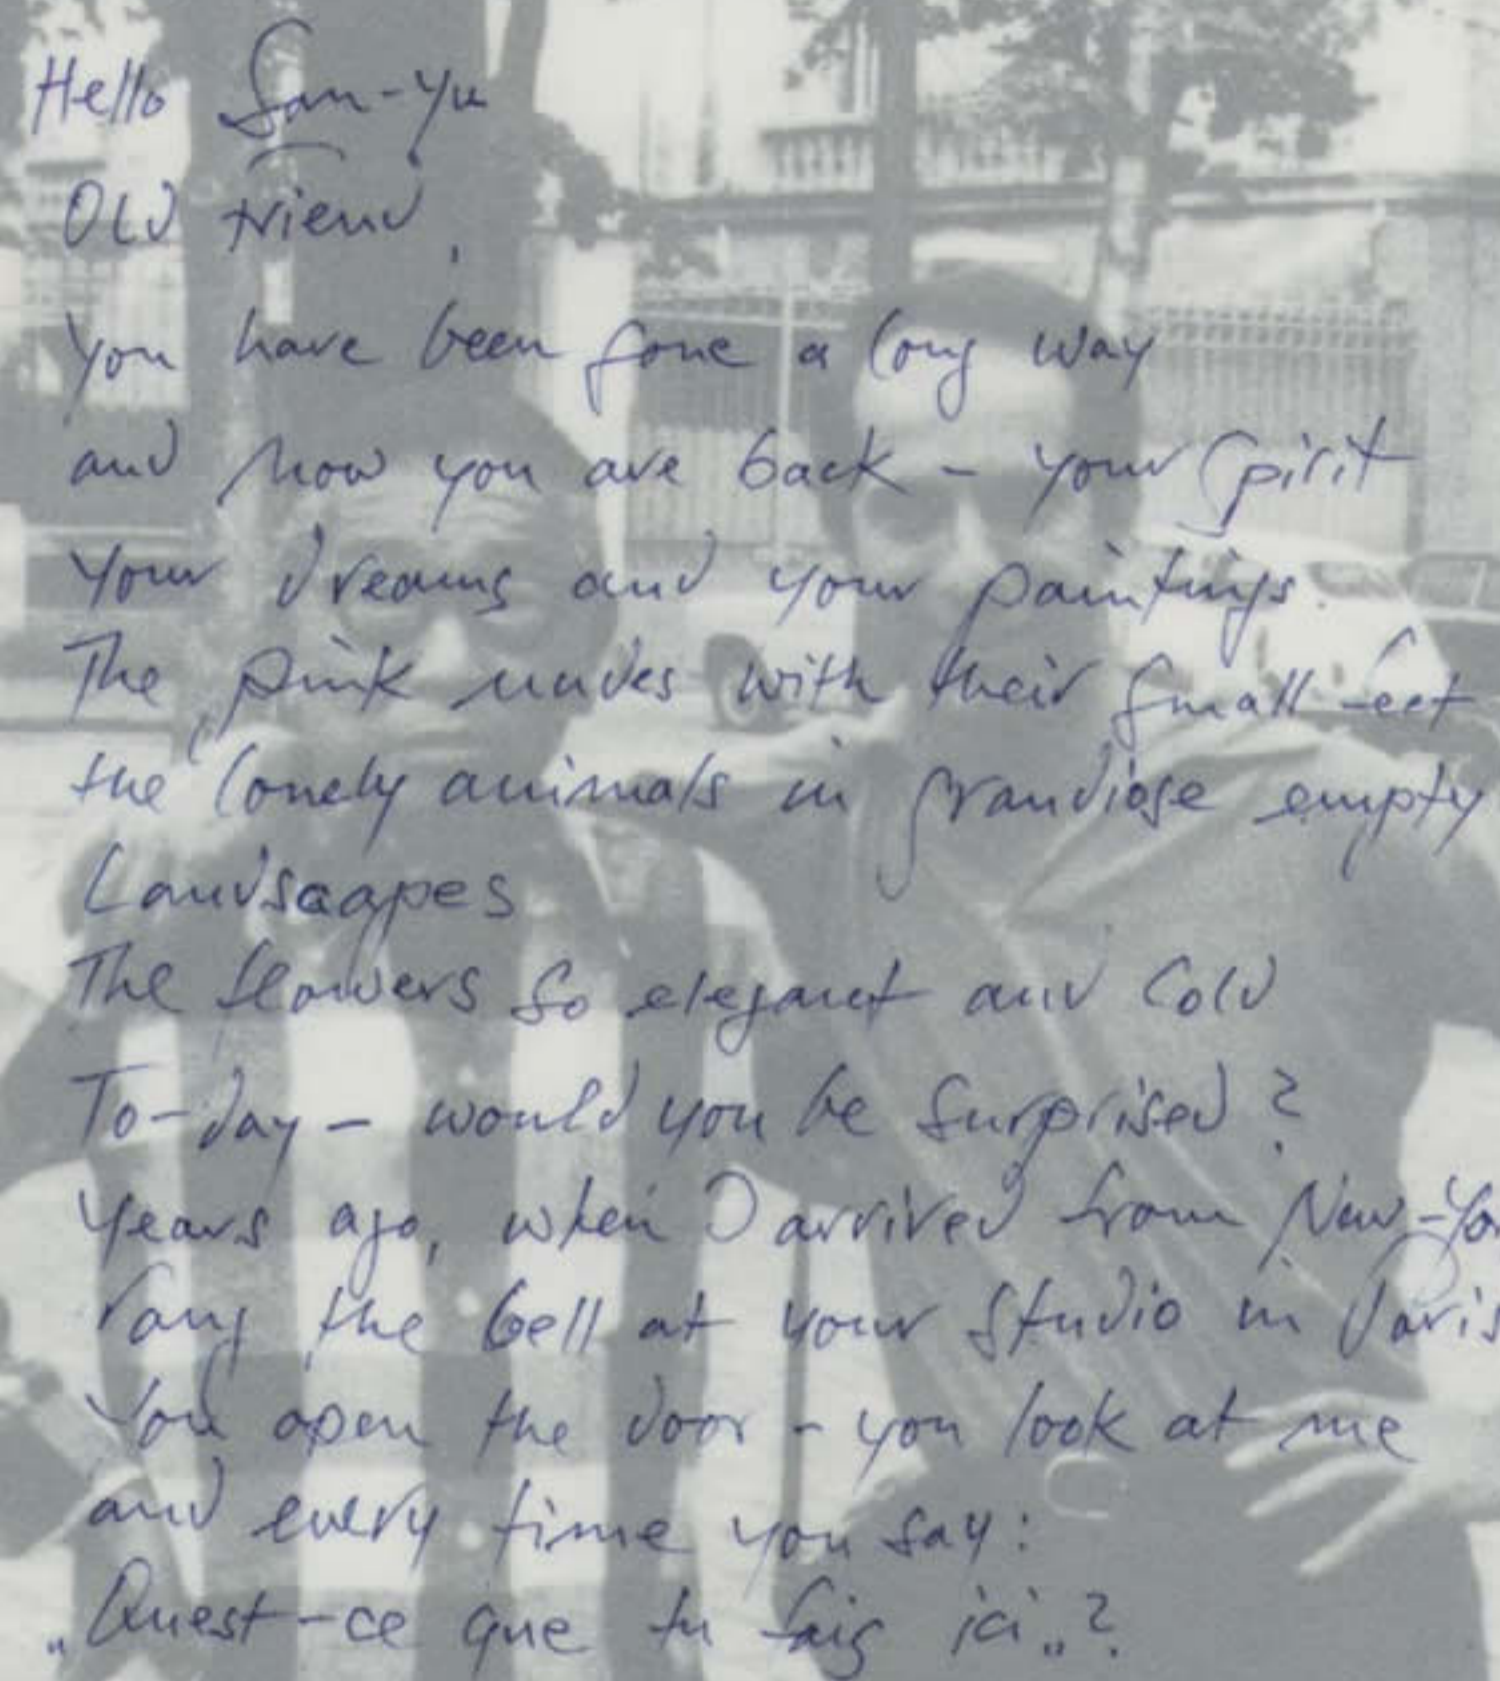 Hello San-Yu
Old friend,
you have been gone a long way
and now you are back - your Spirit
Your dreams and your paintings.
The pink nudes with their small feet
the lonely animals in grandiose empty
Landscapes
The flowers so elegant and Cold
To-day - would you be surprised?
Years ago, when I arrived from New-Yor
rang the bell at your studio in Paris
You open the door - you look at me
and every time you say:
„Quest-ce que tu fais ici„?